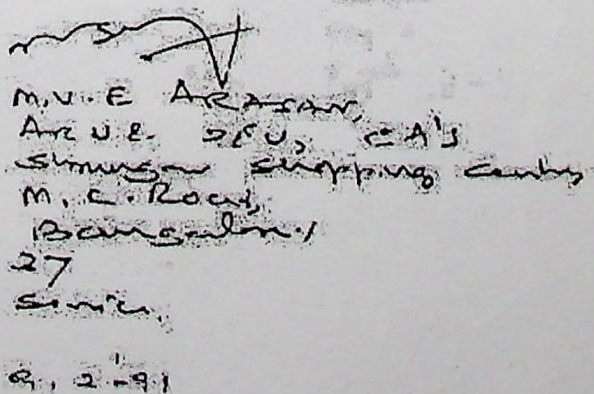 M.V.E ARASAN,
ARUL DEV, CA's
Shrungar Shopping Centre
M.G. Road,
Bangalore.1
27
Service.
9.2.91